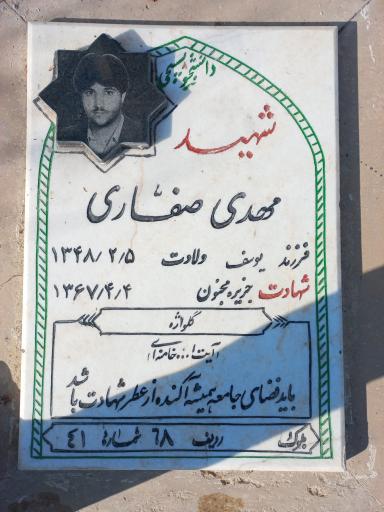 دانشجوی بسیجی
شهید
مهدی صفاری
فرزند یوسف ولادت ۱۳۴۸/۲/۵
شهادت جزیره مجنون ۱۳۶۷/۴/۴
گلواژه
(آیت ا... خامنه ای)
باید فضای جامعه همیشه آکنده از عطر شهادت باشد
بلوک ردیف ۶۸ شماره ۴۱